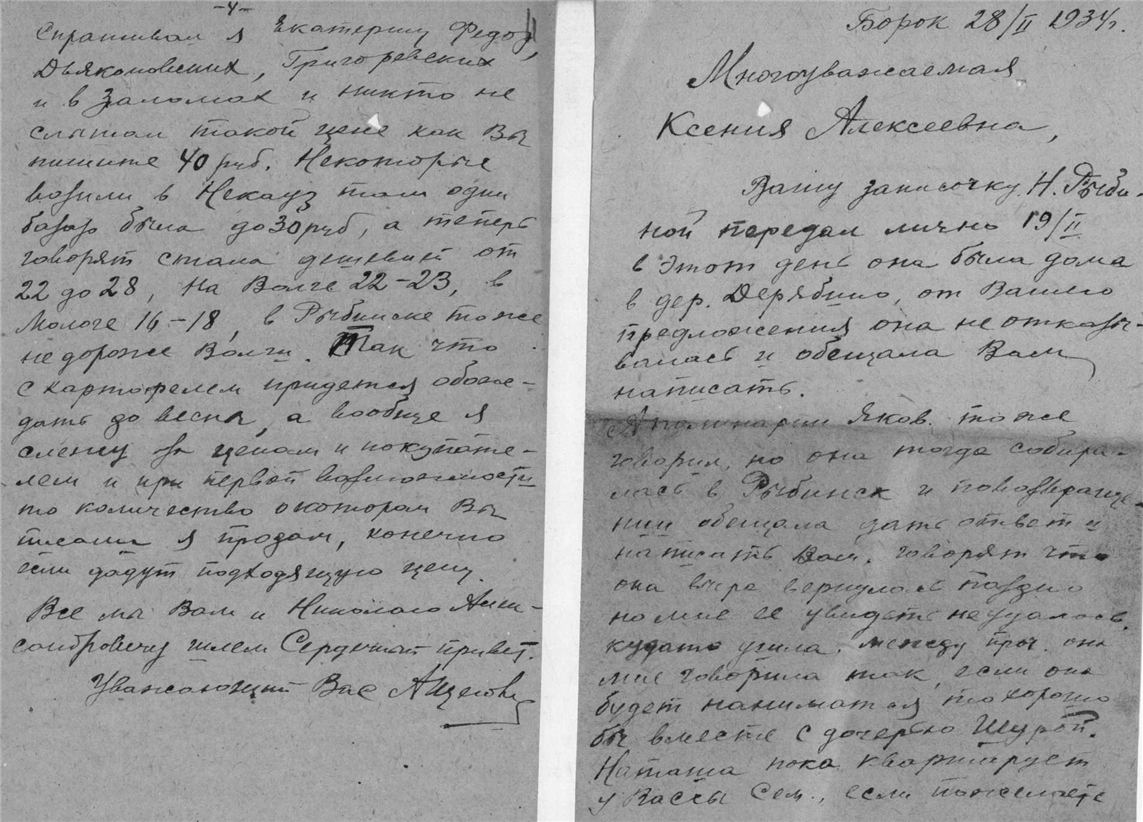 -4-
спрашивал я Екатерину Федор,
Дьяконовских, Григоревских
и в Заломах и никто не
слышал такой цене как Вы
пишите 40 руб. Некоторые
возили в Некоуз там один
базар была до 30 руб, а теперь
говорят стала дешевит от
22 до 28, на Волге 22-23, в
Мологе 16-18, в Рыбинске тоже
не дороже Волги. Так что
с картофелем придется обоже-
дать до весны, а вообще я
слежу за ценам и покупате-
лем и при первой возможности
то количество о котором Вы
писали я продам, конечно
если дадут подходящую цену.
Все мы Вам и Николаю Алек-
сандровичу шлем Сердечный привет.
Уважающий Вас
Борок 28/II 1934г.
Многоуважаемая
Ксения Алексеевна,
Вашу записочку Н. Рыби-
ной передал лично 19/II
в этот день она была дома
в дер. Дерябино, от Вашего
предложения она не отказы-
валась и обещала Вам
написать.
Яков. тоже
говорил, но она тогда собира-
лась в Рыбинск и по возвраще-
нии обещала дать ответ и
написать Вам. говорят что
она вчера вернулась поздно
но мне её увидеть не удалось,
куда то ушла, между проч. она
мне говорила так, если она
будет наниматься то хорошо
бы вместе с дочерью Шурой.
Наташа пока квартирует
у Вассы Сем., если пожелаете